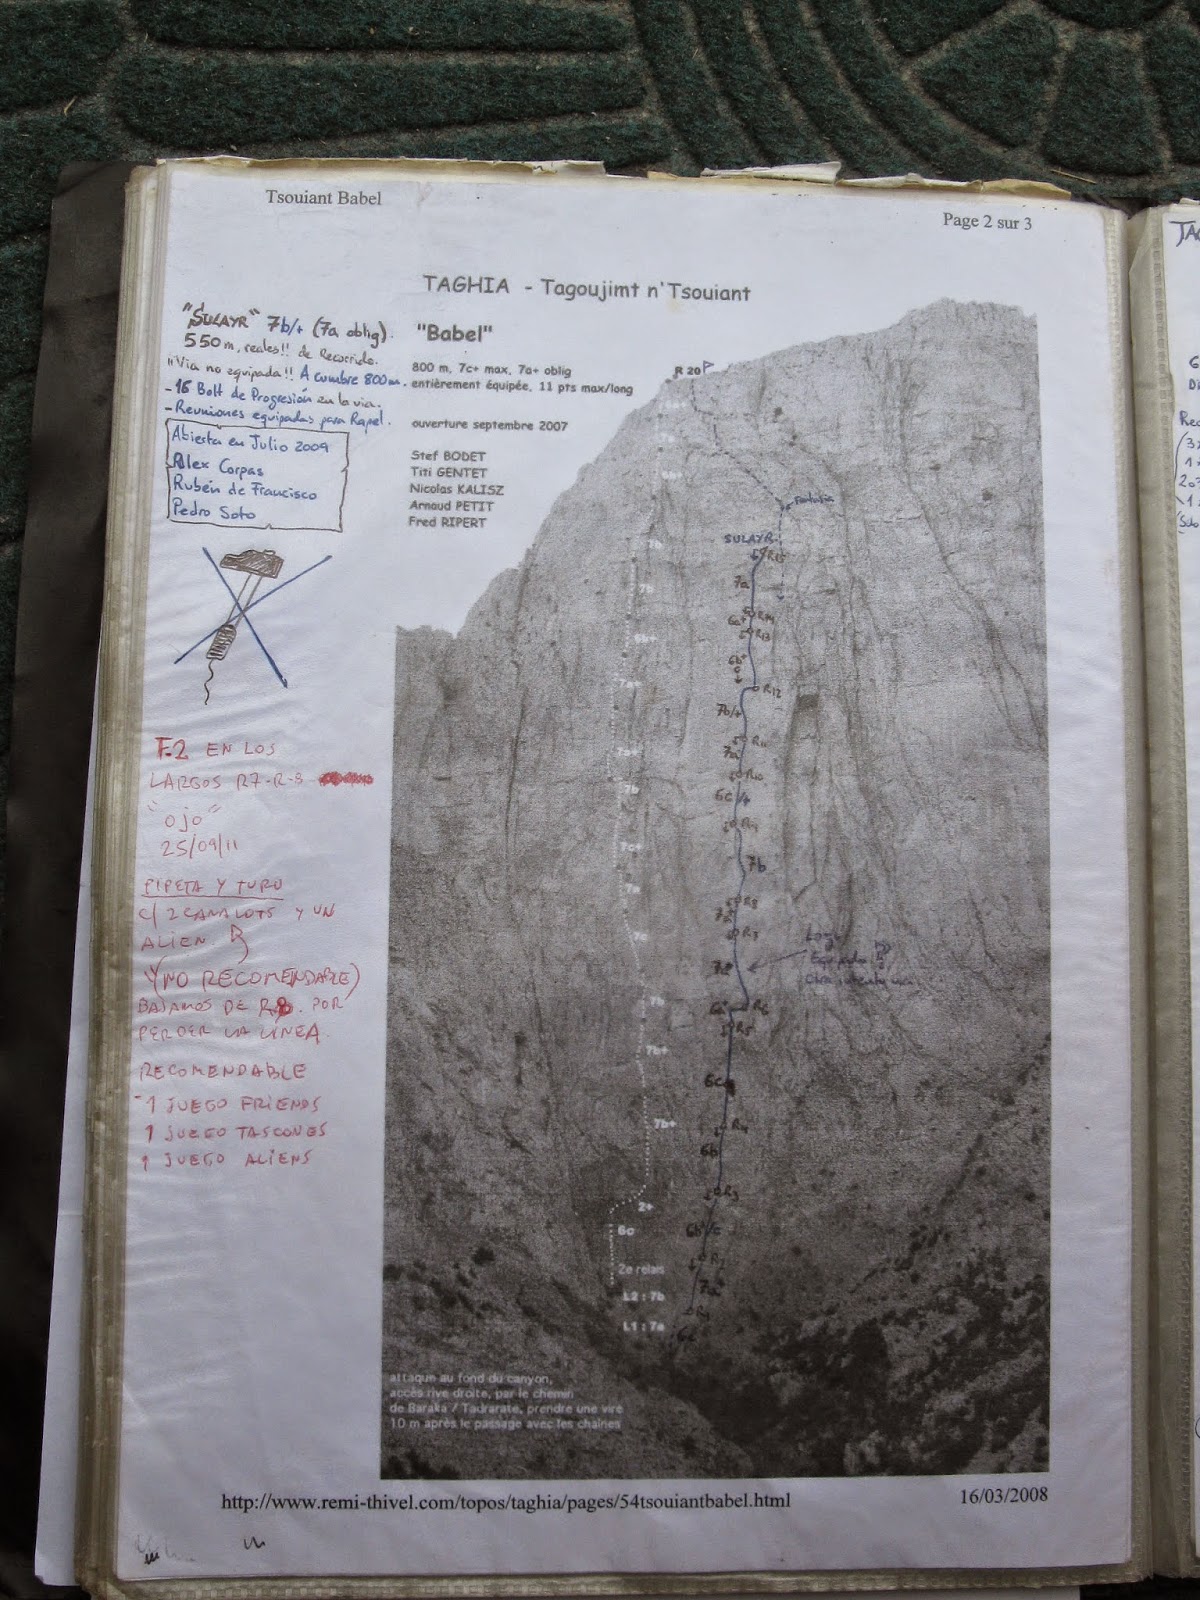 Tsouiant Babel
Page 2 sur 3
TAGHIA - Tagoujimt n'Tsouiant
"Babel"
800 m, 7c+ max, 7a+ oblig
entièrement équipée, 11 pts max/long
ouverture septembre 2007
Stef BODET
Titi GENTET
Nicolas KALISZ
Arnaud PETIT
Fred RIPERT
"SULAYR" 7b/+ (7a oblig).
550m, reales!! de Recorrido.
¡¡Via no equipada!! A cumbre 800m.
- 16 Bolt de Progresión en la via.
- Reuniones equipadas para Rapel.
Abierta en Julio 2009
Alex Corpas
Rubén de Francisco
Pedro Soto
F.2 EN LOS
LARGOS R7-R-8
"ojo"
25/09/11
PIPETA Y TURU
C/ 2 CAMALOTS Y UN
ALIEN.
(NO RECOMENDABLE)
BAJAMOS DE R8. POR
PERDER LA LINEA.
RECOMENDABLE
-1 JUEGO FRIENDS
1 JUEGO TASCONES
1 JUEGO ALIENS
R 20
7b
7b
6b+
7a+
7b
7c+
7a
7c
7b
7b+
7b+
2+
6c
2e relais
L2 : 7b
L1 : 7a
SULAYR
R15
7a
R14
6a+
R13
6b+
R12
7b/+
R11
7a
R10
6c/+
R9
7b
R8
R7
R6
R5
6c
R4
6b
R3
R2
R1
attaque au fond du canyon,
accès rive droite, par le chemin
de Baraka / Tadrarate, prendre une vire
10 m après le passage avec les chaînes
http://www.remi-thivel.com/topos/taghia/pages/54tsouiantbabel.html
16/03/2008